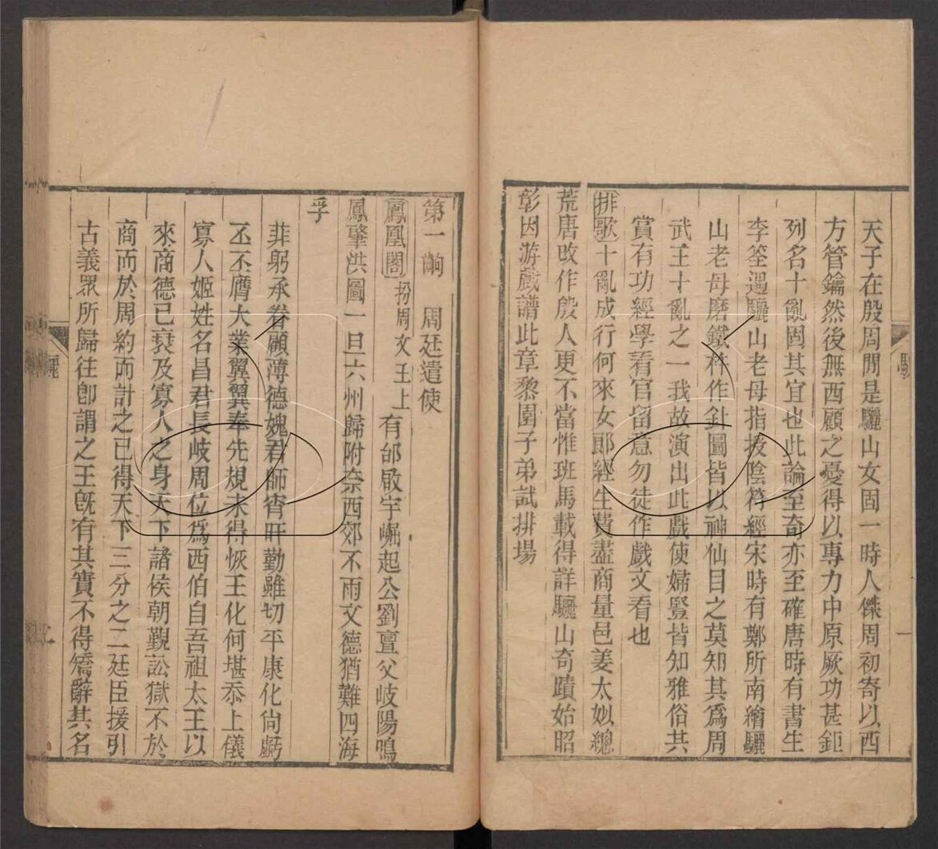 天子在殷周閒是驪山女固一時人傑周初寄以西
方管鑰然後無西顧之憂得以專力中原厥功甚鉅
列名十亂固其宜也此論至奇亦至確唐時有書生
李筌遇驪山老母指授陰符經宋時有鄭所南繪驪
山老母磨鐵杵作針圖皆以神仙目之莫知其爲周
武王十亂之一我故演出此戲使婦豎皆知雅俗共
賞有功經學看官留意勿徒作戲文看也
排歌十亂成行何來女郎經生費盡商量邑姜太姒總
荒唐改作殷人更不當惟班馬載得詳驪山奇蹟始昭
彰因游戲譜此章黎園子弟試排場
第一齣 周廷遣使
鳳凰閣扮周文王上有邰啟宇崛起公劉亶父岐陽鳴
鳳肇洪圖一旦六州歸附奈西郊不雨文德猶難四海
孚
菲躬承眷顧薄德媿君師宵旰勤雖切平康化尙虧
丕丕膺大業翼翼奉先規未得恢王化何堪忝上儀
寡人姬姓名昌君長岐周位爲西伯自吾祖太王以
來商德已衰及寡人之身天下諸侯朝覲訟獄不於
商而於周約而計之已得天下三分之二廷臣援引
古義眾所歸往卽謂之王旣有其實不得矯辭其名